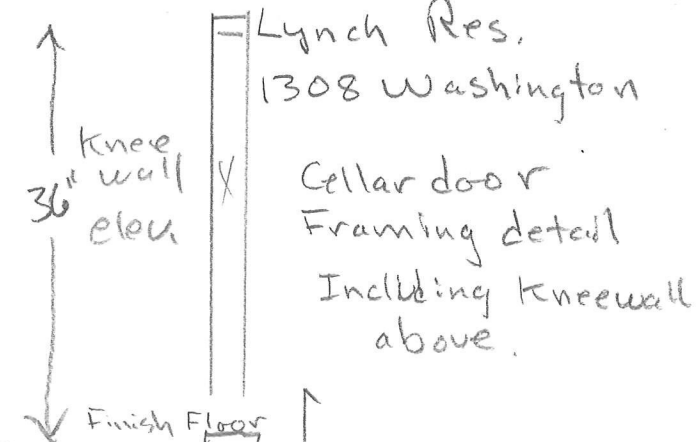 Lynch Res.
1308 Washington
Knee
wall
36"
elev.
X
Cellar door
Framing detail
Including Kneewall
above.
Finish Floor